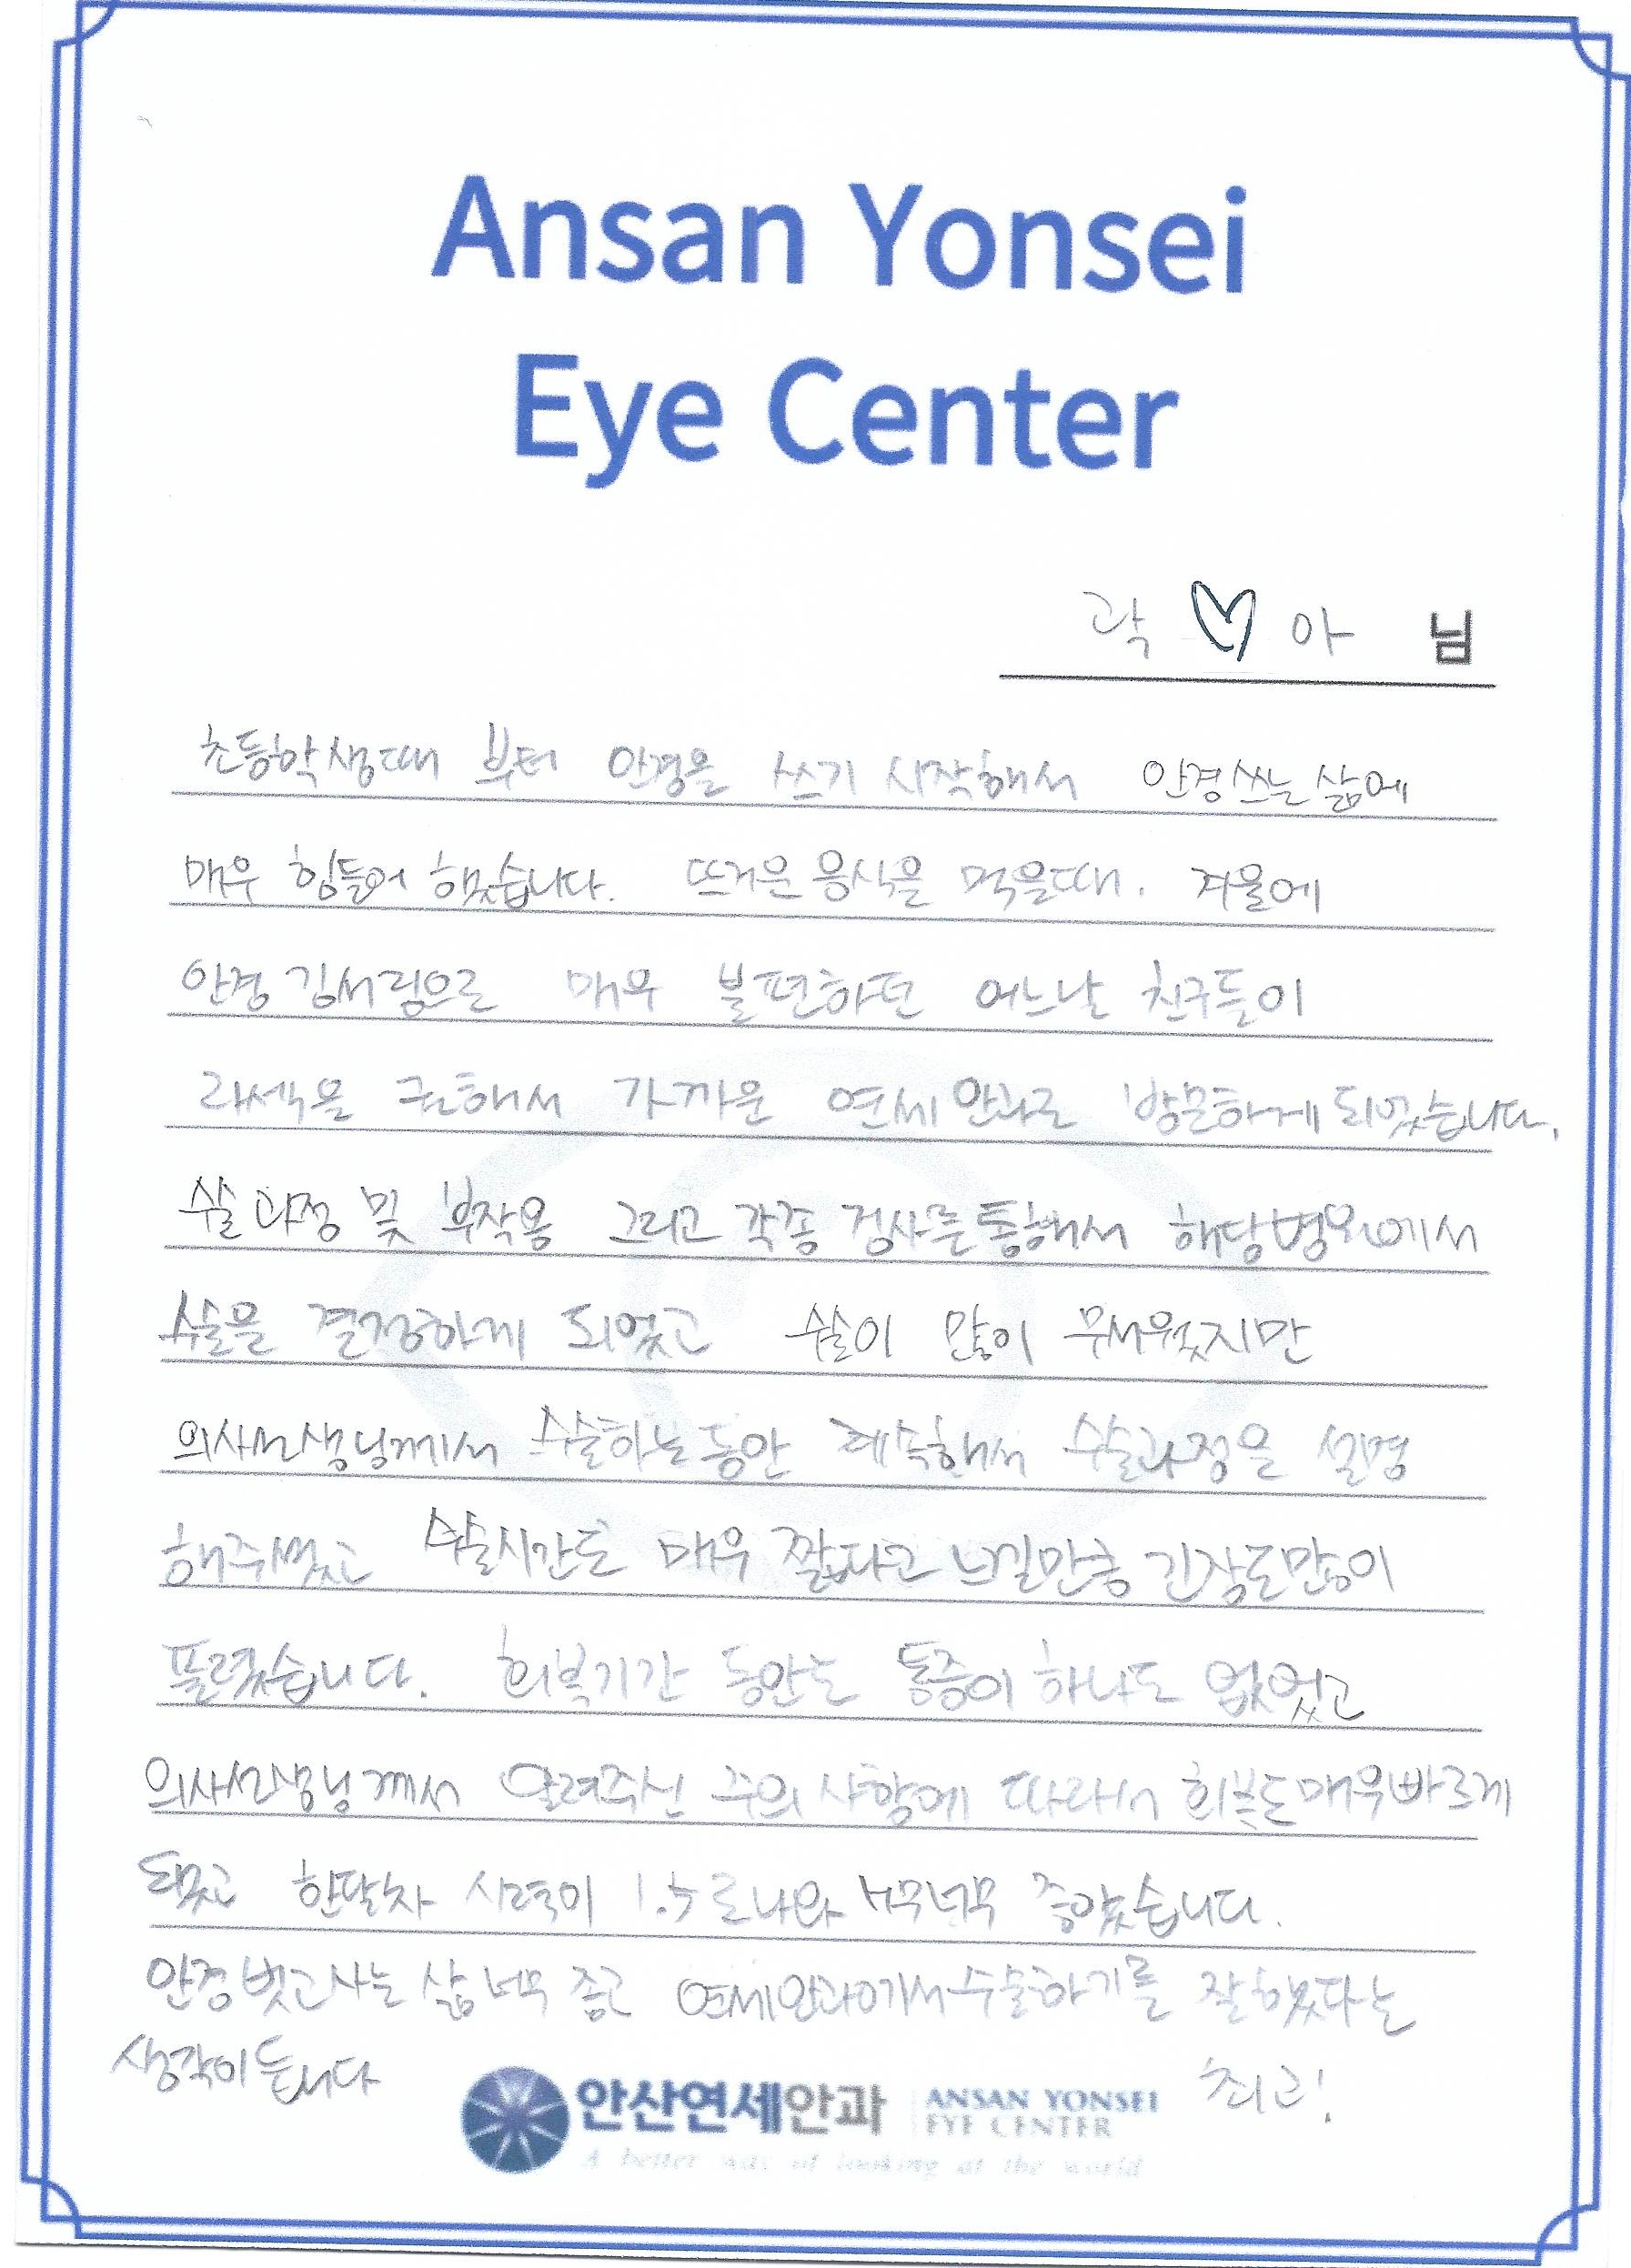 Ansan Yonsei
Eye Center
곽 ♡ 아 님
초등학생때 부터 안경을 쓰기 시작해서 안경쓰는 삶에
매우 힘들어 했습니다. 뜨거운 음식을 먹을때. 겨울에
안경 김서림으로 매우 불편하던 어느날 친구들이
라섹을 권해서 가까운 연세안과로 방문하게 되었습니다.
수술과정 및 부작용 그리고 각종 검사를 통해서 해당병원에서
수술을 결정하게 되었고 수술이 많이 무서웠지만
의사선생님께서 수술하는동안 계속해서 수술과정을 설명
해주셨고 수술시간도 매우 짧다고 느낄만큼 긴장도많이
풀렸습니다. 회복기간 동안도 통증이 하나도 없었고
의사선생님께서 알려주신 주의 사항에 따라서 회복도매우빠르게
됐고 한달차 시력이 1.5로나와 너무너무 좋았습니다.
안경벗고사는 삶 너무 좋고 연세안과에서수술하기를 잘했다는
생각이듭니다 최고!
안산연세안과 ANSAN YONSEI
EYE CENTER
A better way of looking at the world